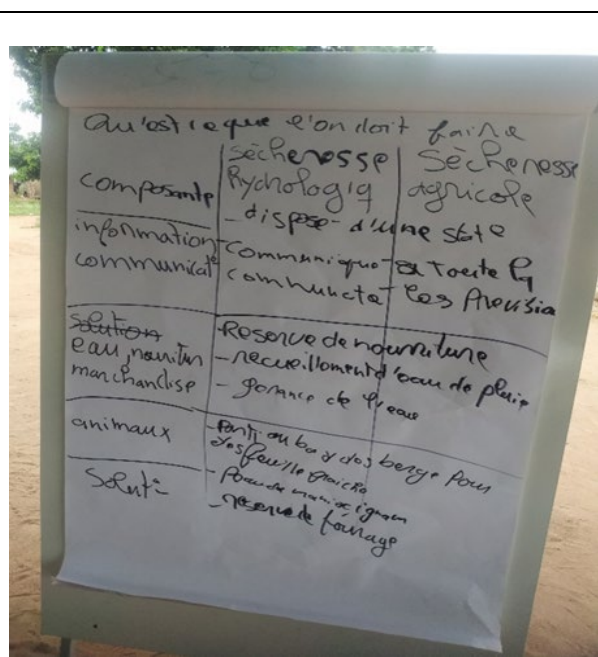 Qu'est ce que l'on doit faire
composante
sècheresse Hydrologiq
Sècheresse agricole
information communicat
- dispose d'une state
communique à toute la
communcté les Prévisio
solution
eau, nourritur
marchandise
Reserve de nourriture
- recueillement d'eau de pluie
- gerance de l'eau
animaux
- Parti au bas des berge Pour
des feuille fraiche
- Peau de manioc ignam
- reserve de fourrage
Soluti-